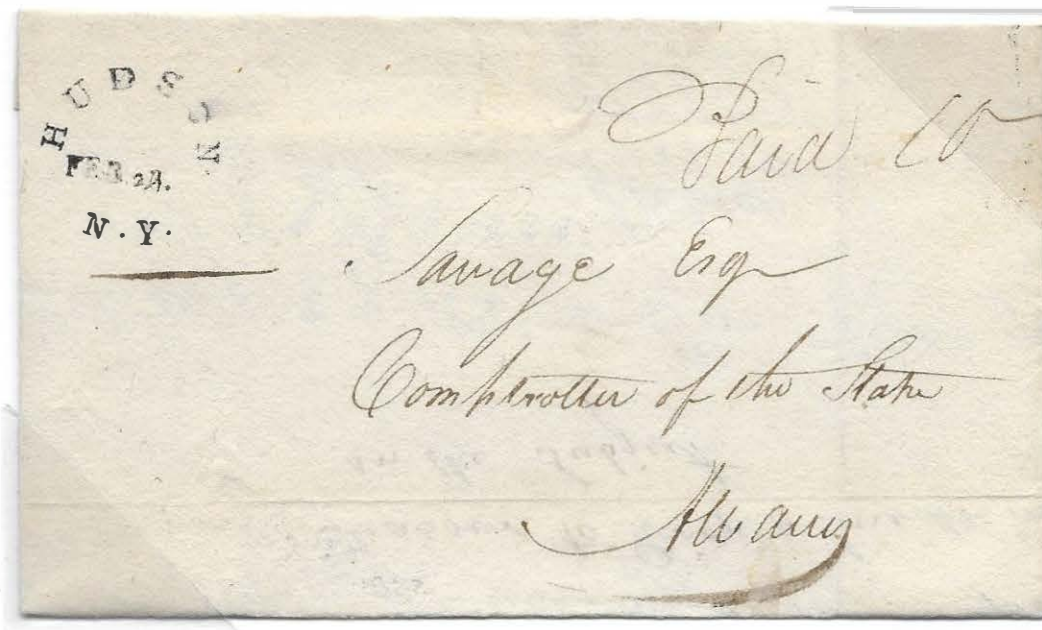 HUDSON
FEB. 28.
N. Y.
Paid 10
Savage Esqr
Comptroller of the State
Albany
on the Subject